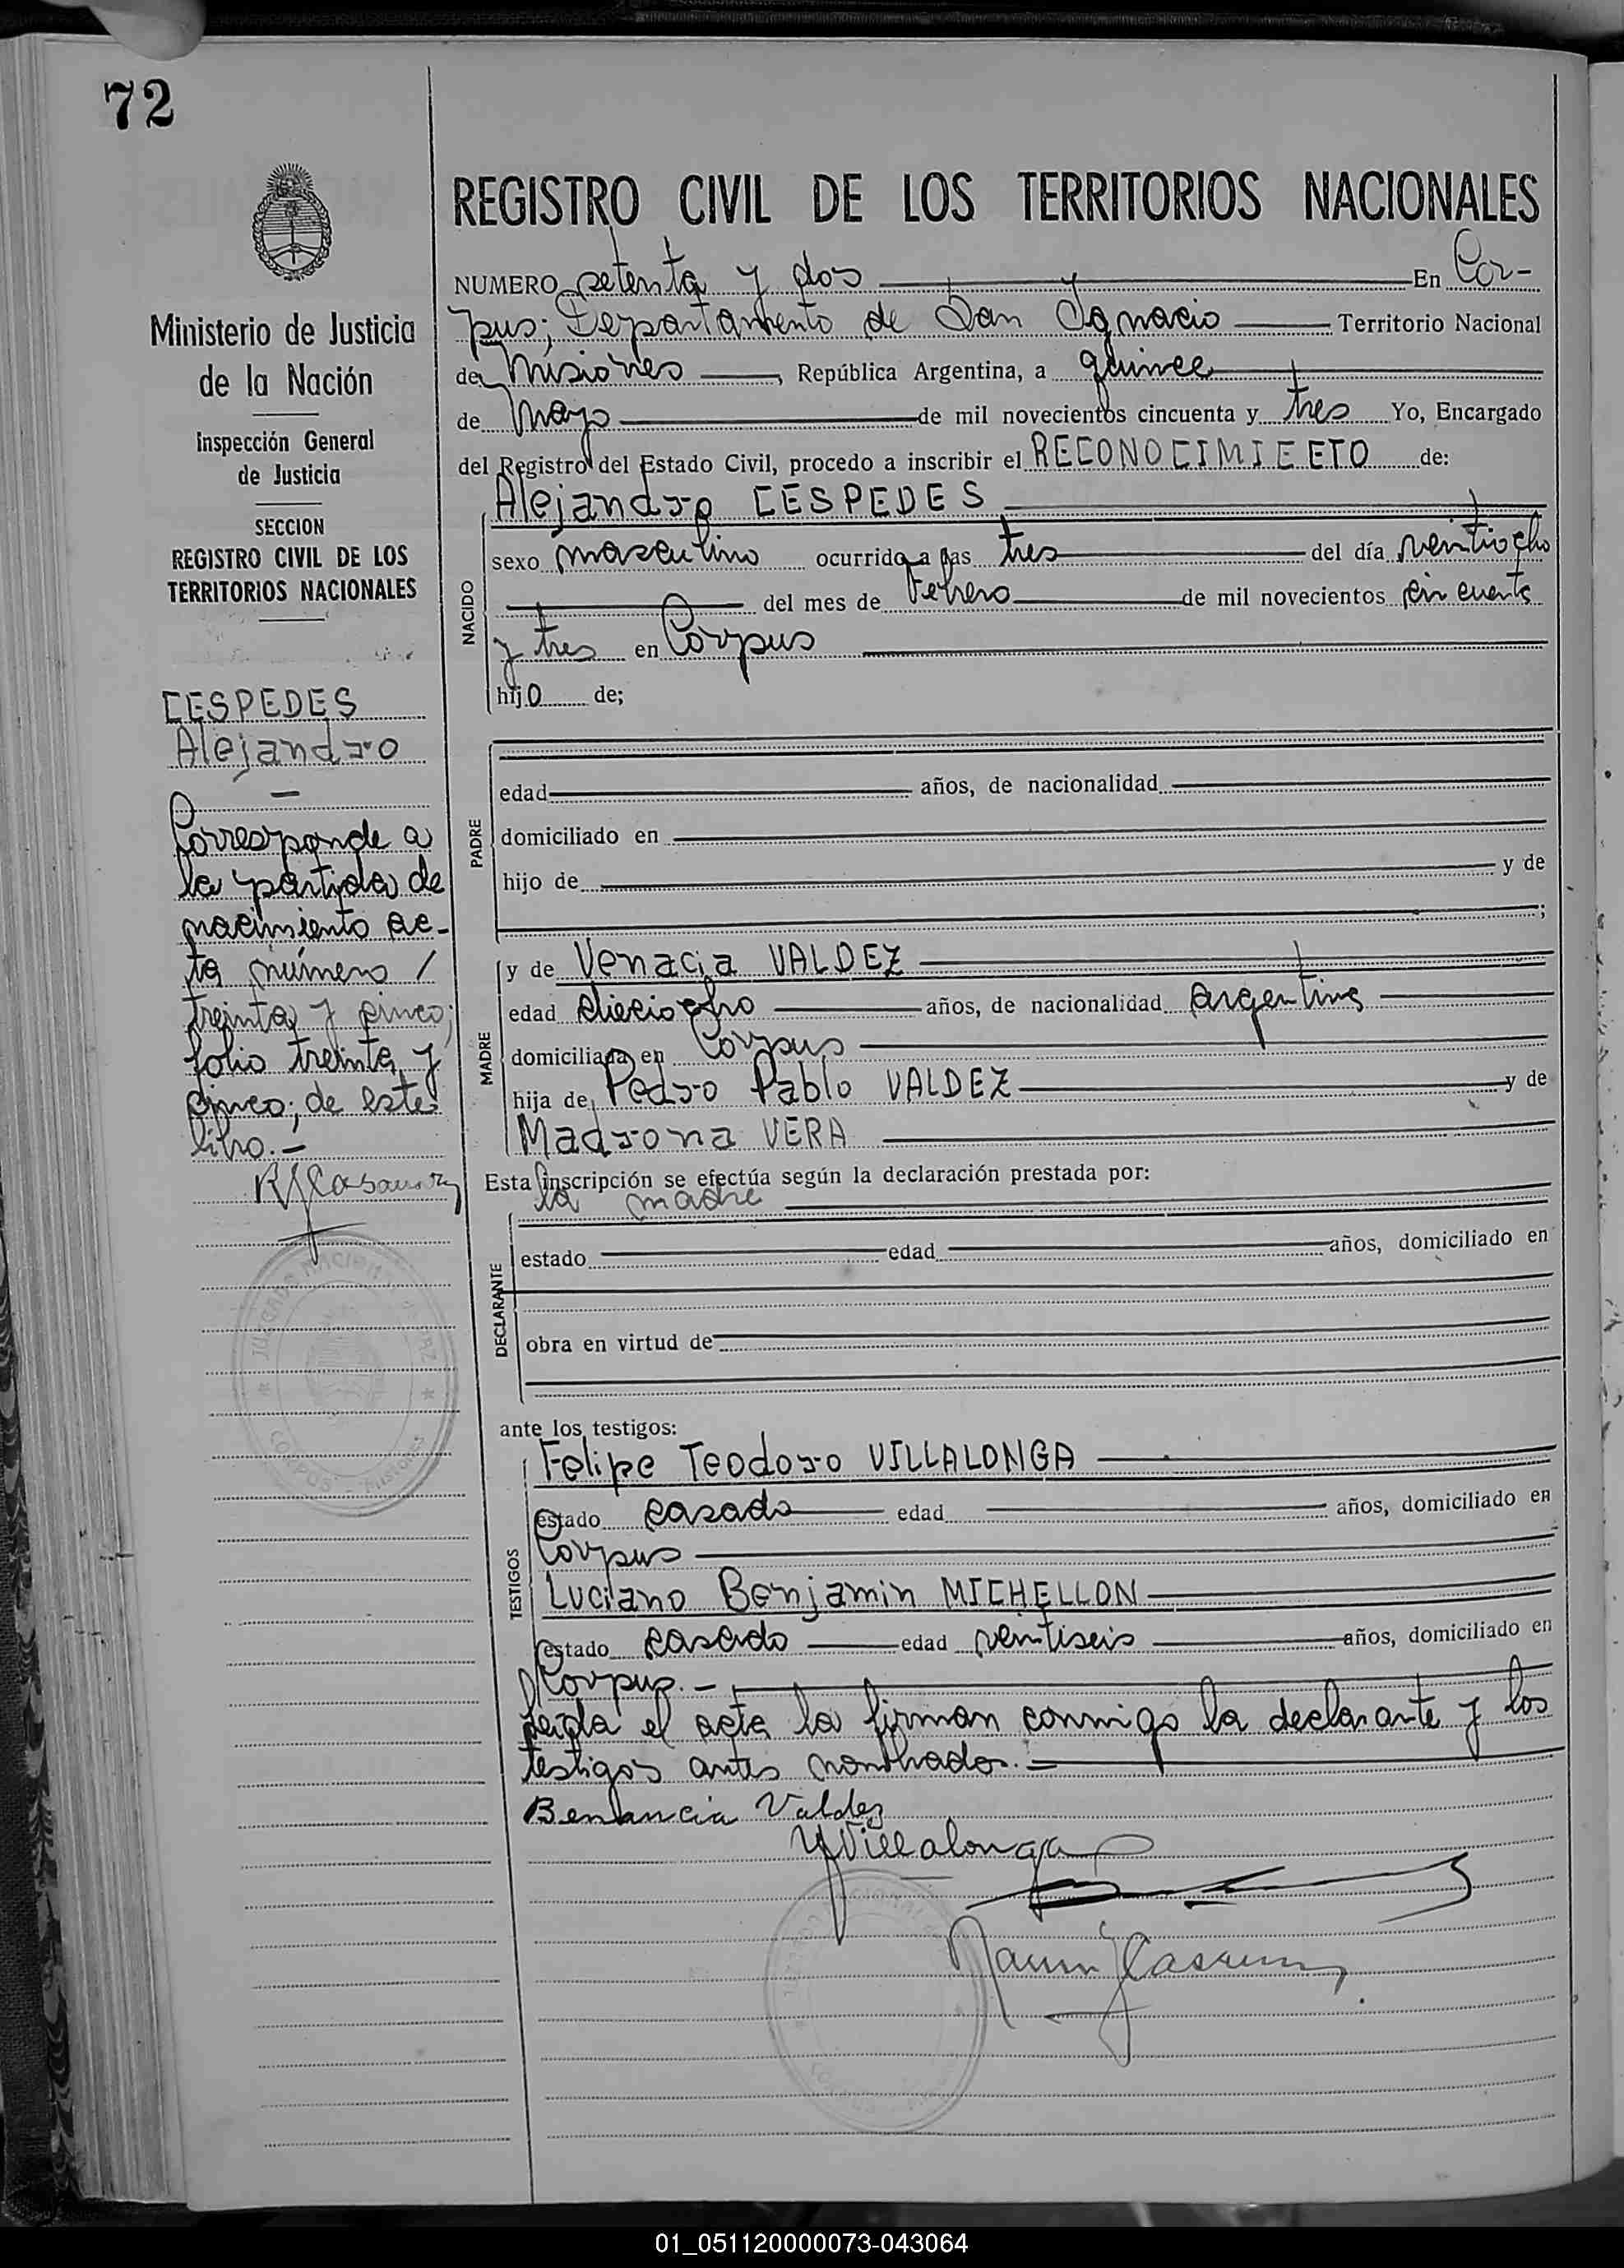 72
Ministerio de Justicia
de la Nación
Inspección General
de Justicia
SECCION
REGISTRO CIVIL DE LOS
TERRITORIOS NACIONALES
CESPEDES
Alejandro
Corresponde a
la partida de
nacimiento ac-
ta número /
treinta y cinco;
folio treinta y
cinco; de este
libro.-
REGISTRO CIVIL DE LOS TERRITORIOS NACIONALES
NUMERO setenta y dos En Cor-
pus; Departamento de San Ignacio Territorio Nacional
de Misiones, República Argentina, a quince
de Mayo de mil novecientos cincuenta y tres Yo, Encargado
del Registro del Estado Civil, procedo a inscribir el RECONOCIMIEETO de:
Alejandro CESPEDES
NACIDO
sexo masculino ocurrido a las tres del día ventiocho
del mes de Febrero de mil novecientos cincuenta
y tres en Corpus
hijo de;
PADRE
edad años, de nacionalidad
domiciliado en
hijo de y de
;
MADRE
y de Venacia VALDEZ
edad dieciocho años, de nacionalidad argentina
domiciliada en Corpus
hija de Pedro Pablo VALDEZ y de
Madrona VERA
Esta inscripción se efectúa según la declaración prestada por:
la madre
DECLARANTE
estado edad años, domiciliado en
obra en virtud de
ante los testigos:
TESTIGOS
Felipe Teodoro VILLALONGA
estado casado edad años, domiciliado en
Corpus
Luciano Benjamin MICHELLON
estado casado edad ventiseis años, domiciliado en
Corpus.-
Leida el acta la firman conmigo la declarante y los
testigos antes nombrados.-
Benancia Valdez
Villalonga
JUZGADO NACIONAL DE PAZ
CORPUS - MISIONES
01_051120000073-043064